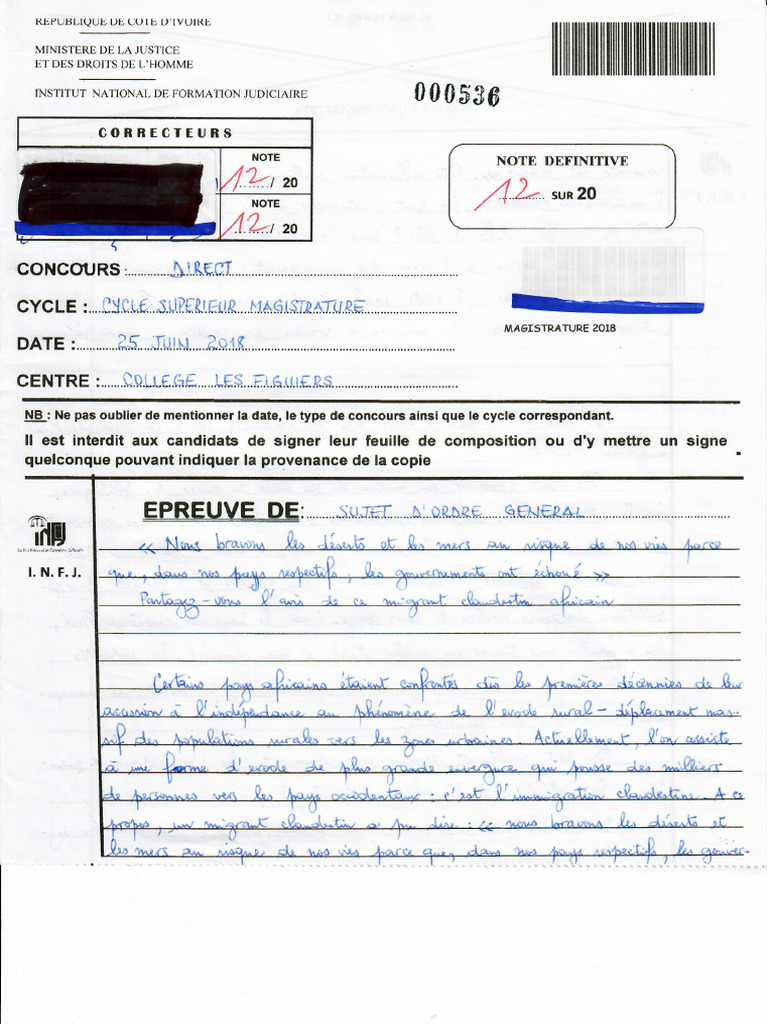 REPUBLIQUE DE COTE D'IVOIRE
MINISTERE DE LA JUSTICE
ET DES DROITS DE L'HOMME
INSTITUT NATIONAL DE FORMATION JUDICIAIRE
000536
CORRECTEURS
NOTE
12 / 20
NOTE
12 / 20
NOTE DEFINITIVE
12 SUR 20
CONCOURS : DIRECT
CYCLE : CYCLE SUPERIEUR MAGISTRATURE
MAGISTRATURE 2018
DATE : 25 JUIN 2018
CENTRE : COLLEGE LES FIGUIERS
NB : Ne pas oublier de mentionner la date, le type de concours ainsi que le cycle correspondant.
Il est interdit aux candidats de signer leur feuille de composition ou d'y mettre un signe
quelconque pouvant indiquer la provenance de la copie
EPREUVE DE: SUJET D'ORDRE GENERAL
I. N. F. J.
« Nous bravons les déserts et les mers au risque de nos vies parce
que, dans nos pays respectifs, les gouvernements ont échoué »
Partagez-vous l'avis de ce migrant clandestin africain
Certains pays africains étaient confrontés dès les premières décennies de leur
accession à l'indépendance au phénomène de l'exode rural - déplacement mas-
sif des populations rurales vers les zones urbaines. Actuellement, l'on assiste
à une forme d'exode de plus grande envergure qui pousse des milliers
de personnes vers les pays occidentaux : c'est l'immigration clandestine. A ce
propos, un migrant clandestin a pu dire : « nous bravons les déserts et
les mers au risque de nos vies parce que, dans nos pays respectifs, les gouver-